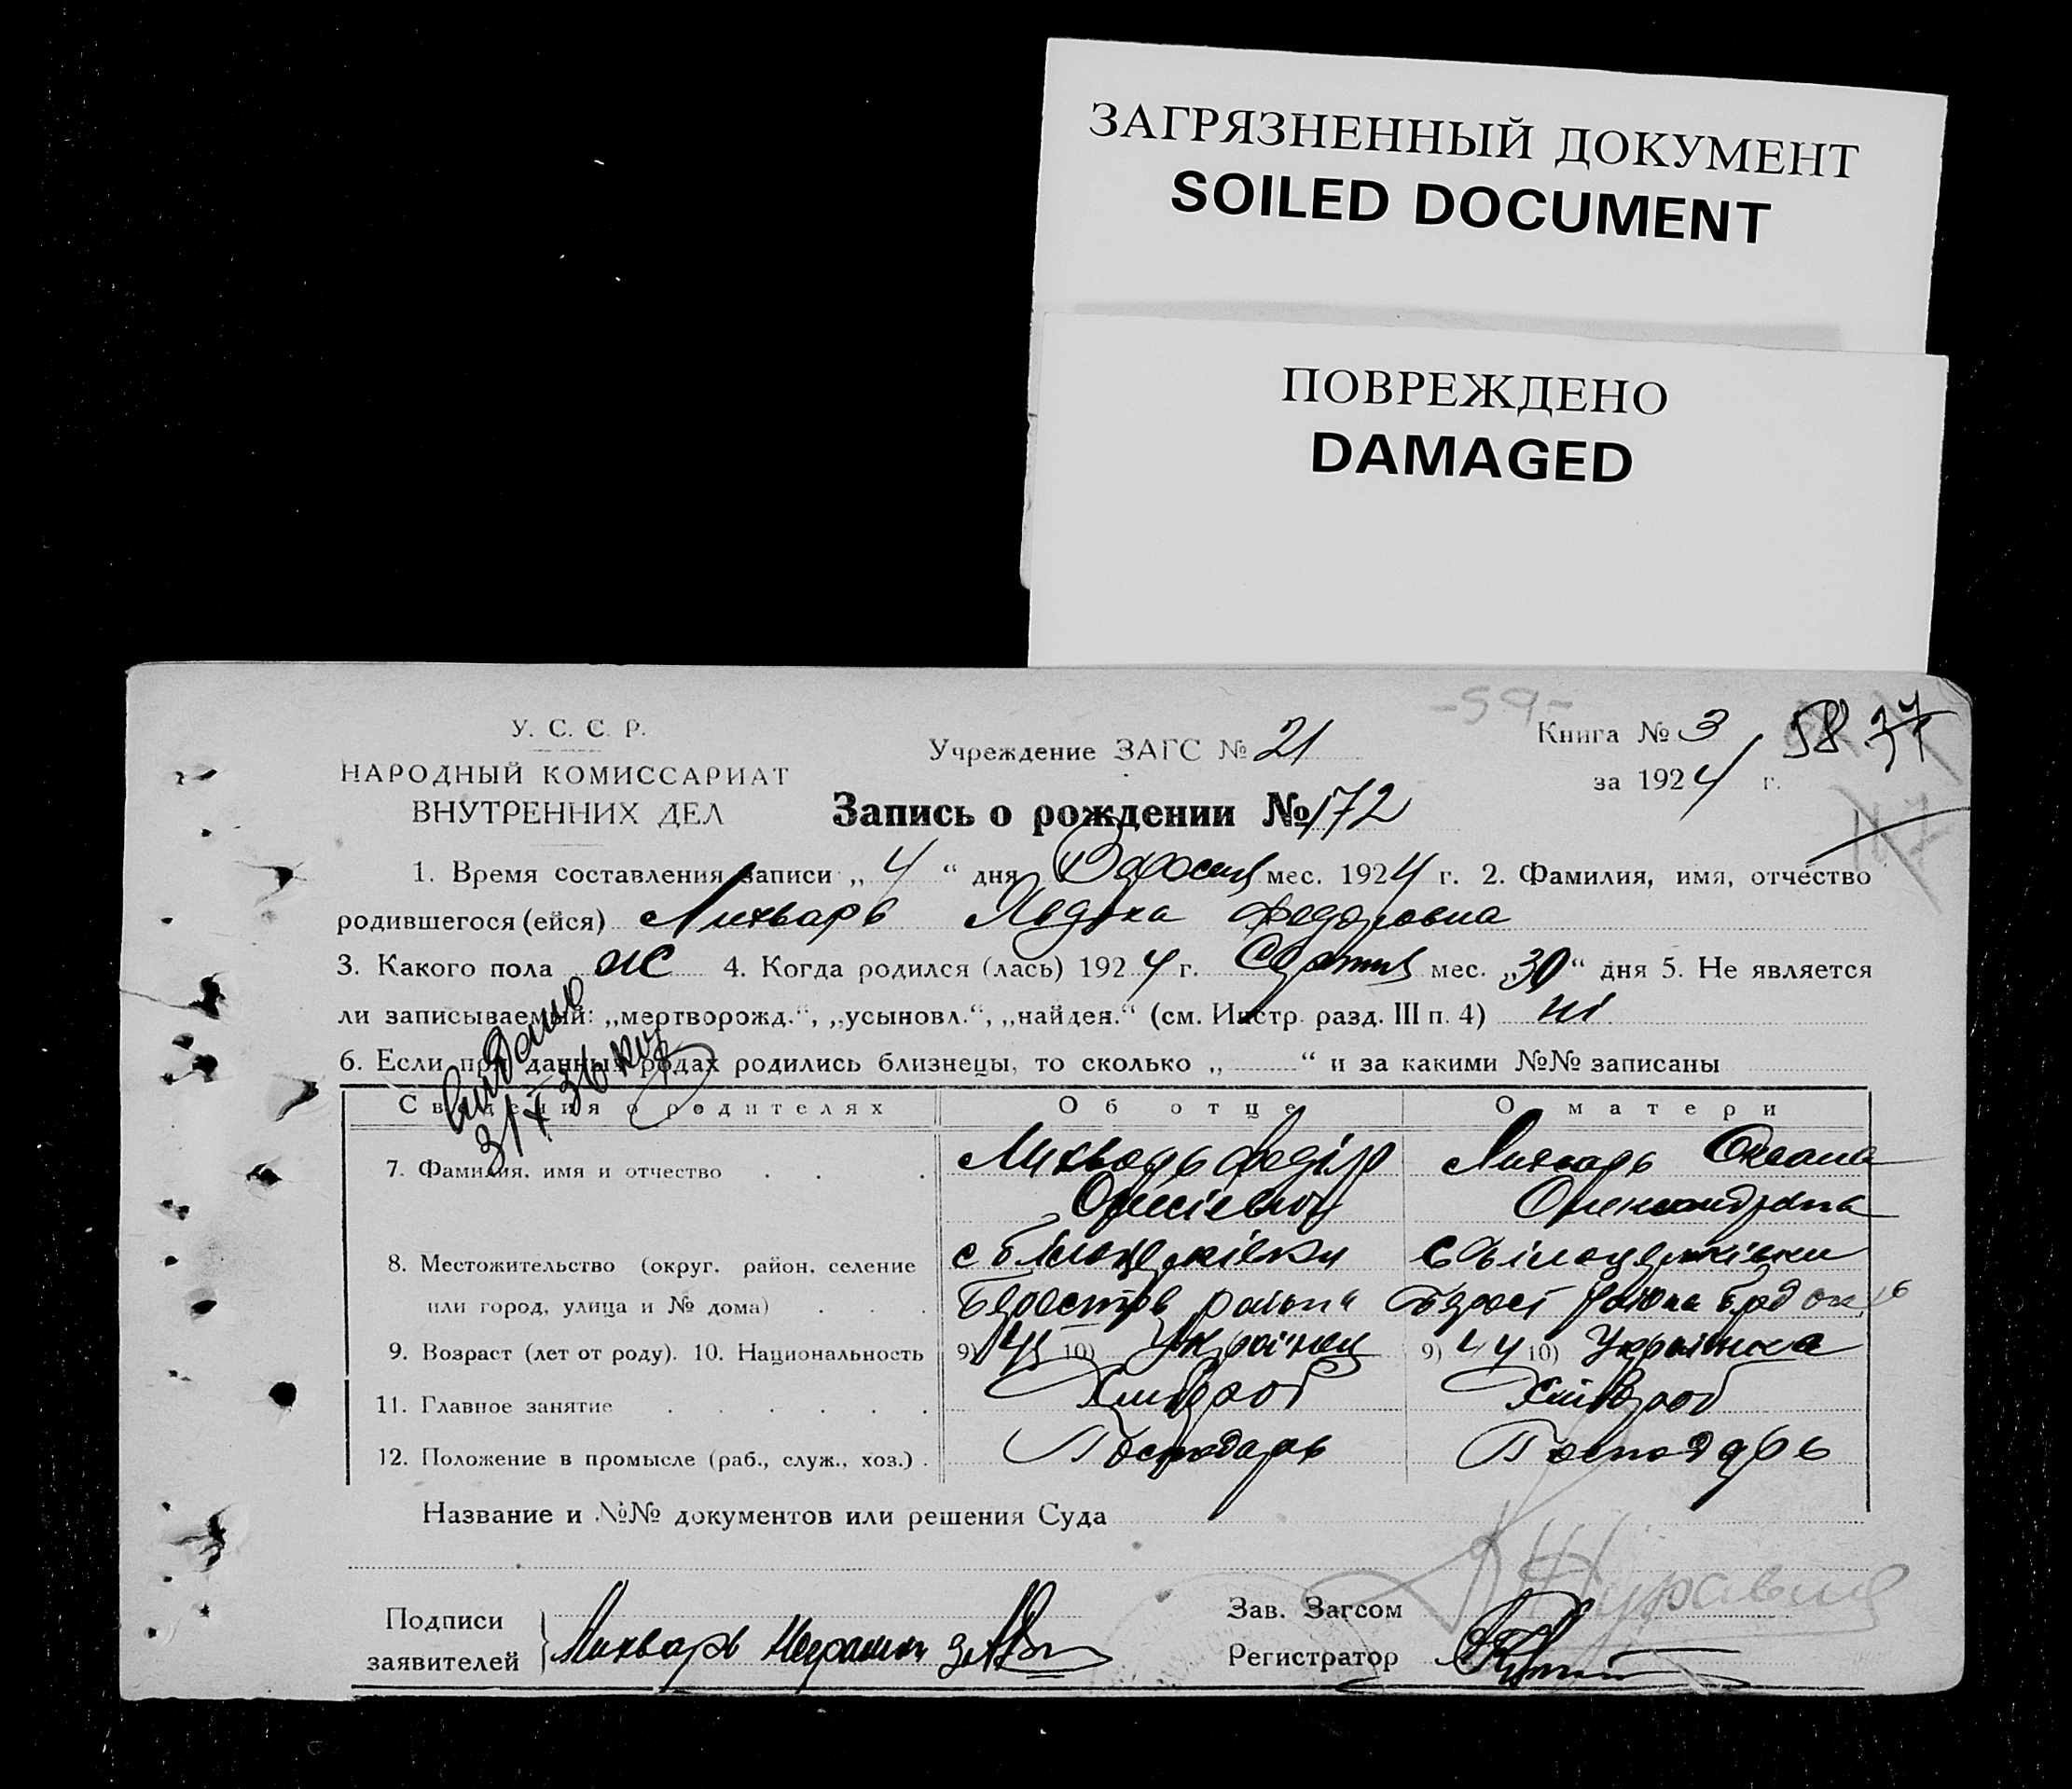 ЗАГРЯЗНЕННЫЙ ДОКУМЕНТ
SOILED DOCUMENT
ПОВРЕЖДЕНО
DAMAGED
-59-
У. С. С. Р.
НАРОДНЫЙ КОМИССАРИАТ
ВНУТРЕННИХ ДЕЛ
Учреждение ЗАГС № 21
Книга № 3
58 37
за 1924 г.
117
Запись о рождении № 172
1. Время составления записи „ 4 “ дня мес. 1924 г. 2. Фамилия, имя, отчество
родившегося (ейся) Лихварь Явдоха Федоровна
3. Какого пола ж 4. Когда родился (лась) 1924 г. мес. „30“ дня 5. Не является
ли записываемый: „мертворожд.“, „усыновл.“, „найден.“ (см. Инстр. разд. III п. 4) ні
6. Если при данных родах родились близнецы, то сколько „ “ и за какими №№ записаны
Видано
31 X 36
Сведения о родителях Об отце О матери
7. Фамилия, имя и отчество Лихварь Федір Лихварь Оксана
Олександровна
8. Местожительство (округ, район, селение с Білоцерківки с Білоцерківки
или город, улица и № дома) района района
9. Возраст (лет от роду). 10. Национальность 9) 45 10) Украінец 9) 44 10) Украінка
11. Главное занятие Хлібороб Хлібороб
12. Положение в промысле (раб., служ., хоз.) Господарь Господарь
Название и №№ документов или решения Суда
Подписи
заявителей
Лихварь
Зав. Загсом
Регистратор